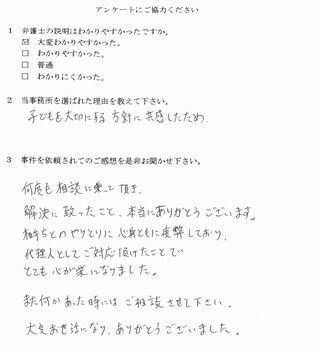 アンケートにご協力ください
1 弁護士の説明はわかりやすかったですか。
☑ 大変わかりやすかった。
□ わかりやすかった。
□ 普通
□ わかりにくかった。
2 当事務所を選ばれた理由を教えて下さい。
子どもを大切にする方針に共感したため
3 事件を依頼されてのご感想を是非お聞かせ下さい。
何度も相談に乗って頂き、
解決に致ったこと、本当にありがとうございます。
相手とのやりとりに心身ともに疲弊しており、
代理人としてご対応頂けたことで
とても心が楽になりました。
また何かあった時にはご相談させて下さい。
大変お世話になり、ありがとうございました。